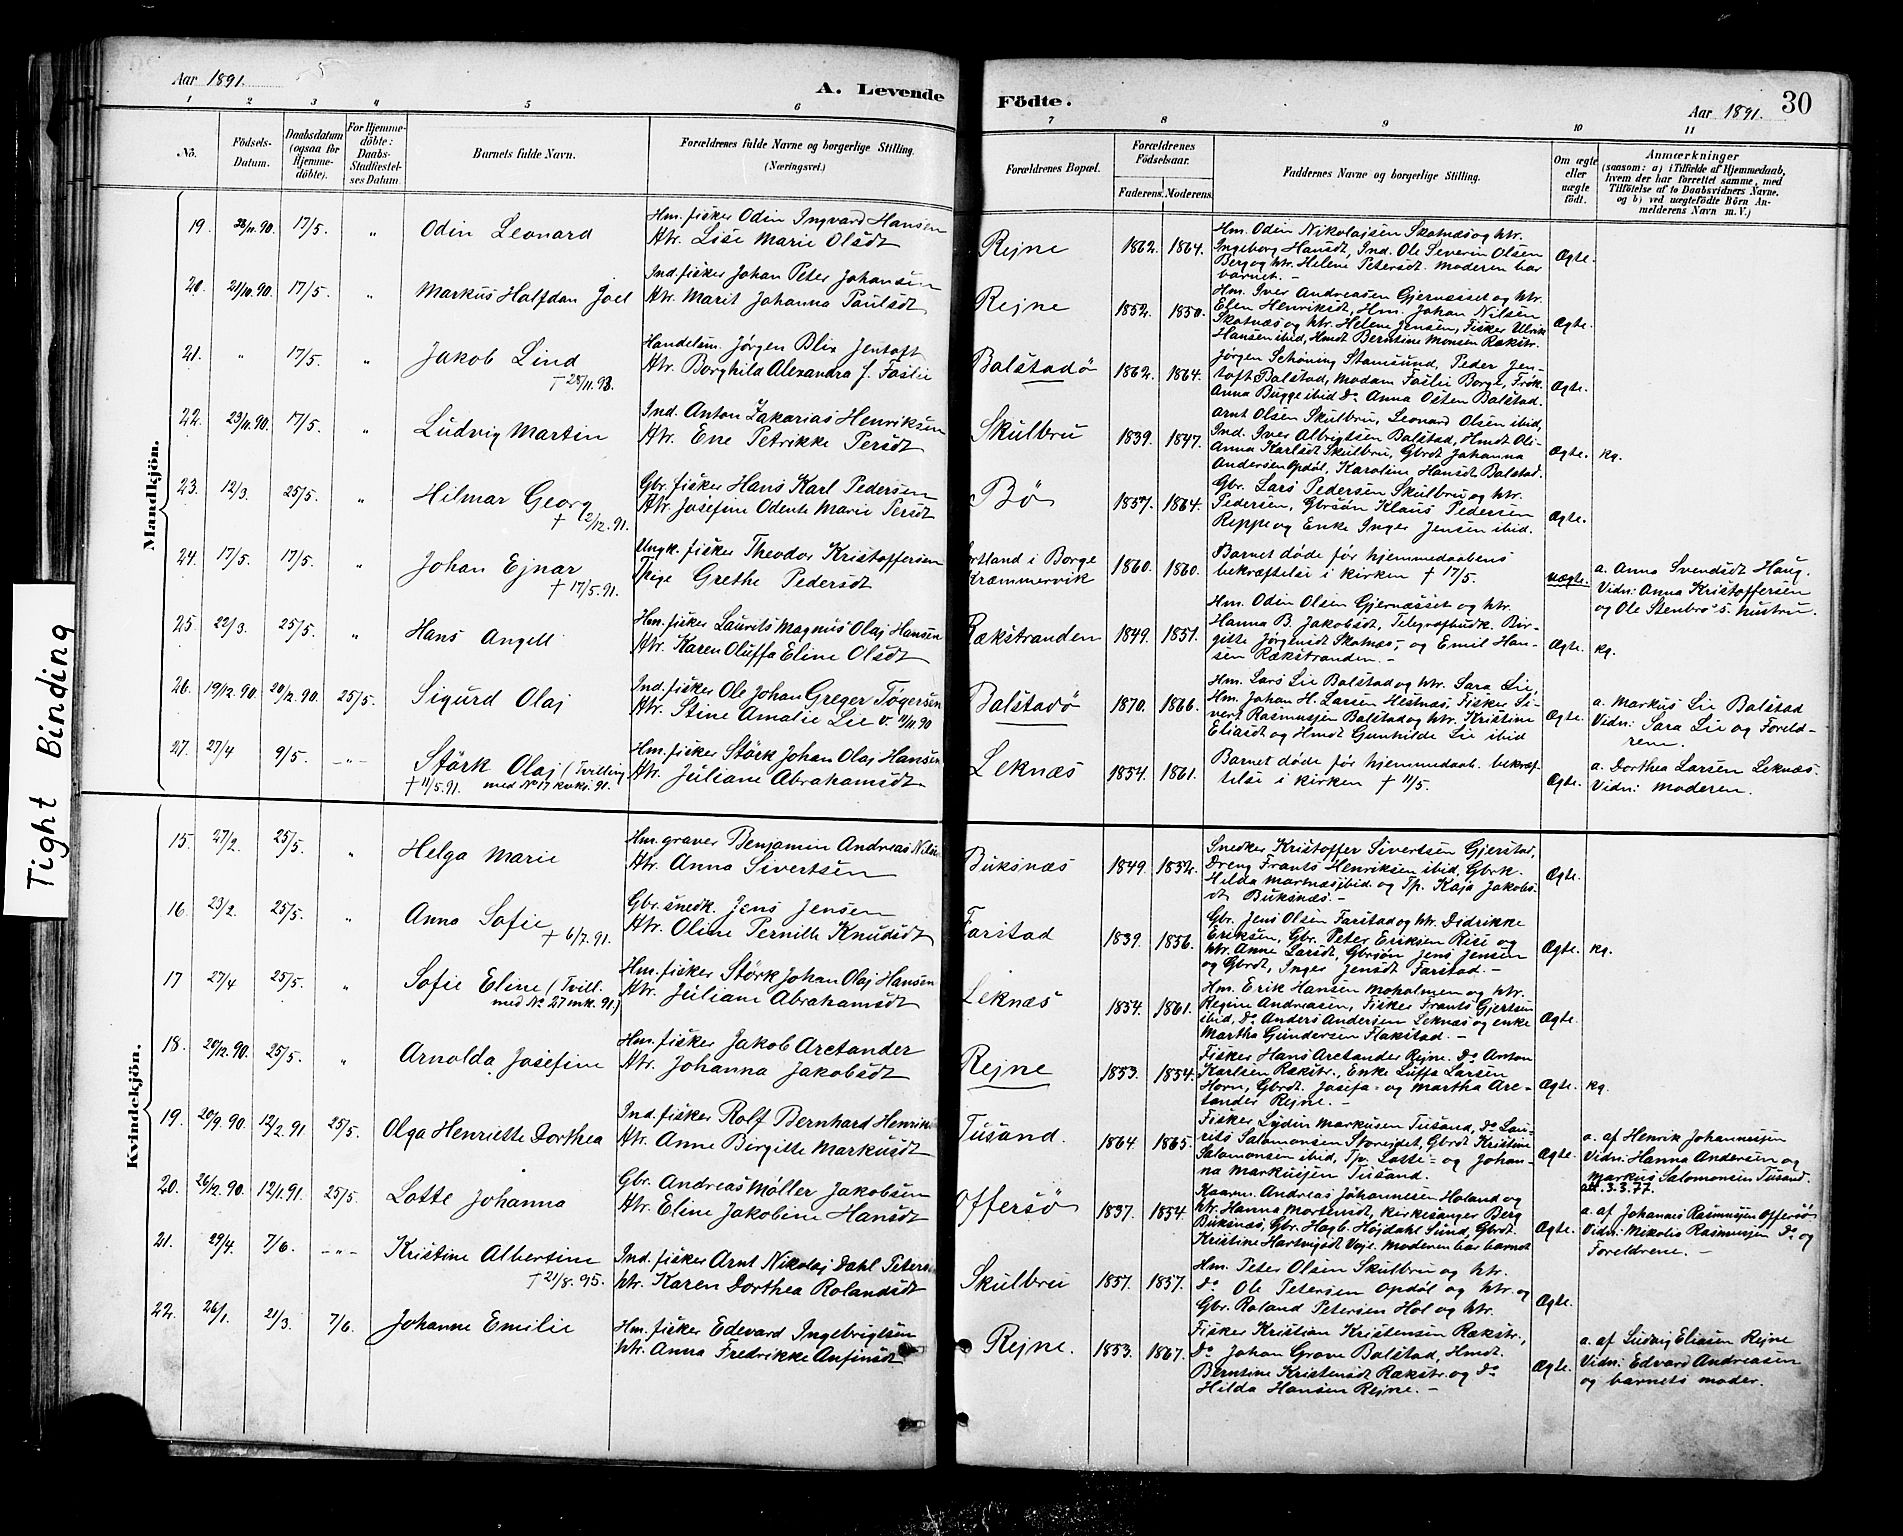 Aar 1891.
A. Levende
1 2 3 4 5 6
No.
Födsels-
Datum.
Daabsdatum
(ogsaa for
Hjemme-
döbte).
For Hjemme-
döbte:
Daabs-
Stadfæstel-
ses Datum
Barnets fulde Navn.
Forældrenes fulde Navne og borgerlige Stilling.
(Næringsvei.)
Födte.
Aar 1891.
30
7 8 9 10 11
Forældrenes Bopæl.
Forældrenes
Födselsaar.
Faderens. Moderens.
Faddernes Navne og borgerlige Stilling.
Om ægte
eller
uægte
født.
Anmærkninger
(saasom: a) i Tilfælde af Hjemmedaab,
hvem der har forrettet samme, med
Tilföielse af to Daabsvidners Navne.
og b) ved uægtefödte Börn An-
melderens Navn m. V.)
Tight Binding
Mandkjön.
19. 28/11.90. 17/5. " Odin Leonard
Hm. fisker Odin Ingvard Hansen
Htr. Lise Marie Olsdt
Rejne 1862. 1864.
Hm. Odin Nikolajsen Skotnæs og htr.
Ingeborg Hansdt, Ind. Ole Severin Olsen
Berg og htr. Helene Petersdt. Moderen bar
barnet. -
Ægte.
20. 21/10.90. 17/5. " Markus Halfdan Joel
Ind. fisker Johan Peter Johansen
Htr. Marit Johanna Paulsdt
Rejne 1852. 1850.
Hm. Iver Andreasen Gjernæsset og htr.
Elen Henriksdt, Hm. Johan Nilsen
Skotnæs og htr. Helene Jensen, Fisker Ulrik
Hansen ibid, Hmdt Berntine Monsen Rækstr.
Ægte.
21. " 17/5. " Jakob Lind
† 28/11.98.
Handelsm. Jørgen Blix Jentoft
Htr. Borghild Alexandra f. Faslie
Balstadø 1862. 1864.
Jørgen Schøning Stamsund, Peder Jen-
toft Balstad, Madam Faslie Borge, Frøk.
Anna Bugge ibid Do Anna Osten Balstad.
Ægte.
22. 23/11.90. 17/5. " Ludvig Martin
Ind. Anton Zakarias Henriksen
Htr. Ene Petrikke Persdt
Skulbru 1839. 1847.
Arnt Olsen Skulbru, Leonard Olsen ibid,
Ind. Iver Albrigtsen Balstad, Hmdt Oli-
Anna Karlsdt Skulbru, Gbrdt Johanna
Andersen Opdøl, Karoline Hansdt Balstad.
Ægte. kg.
23. 12/3. 25/5. " Hilmar Georg
† 2/12.91.
Gbr. fisker Hans Karl Pedersen
Htr. Josefine Odente Marie Persdt
Bø 1857. 1864.
Gbr. Lars Pedersen Skulbru og htr.
Pedersen, Gbrsøn Klaus Pedersen
Reppe og Enke Inger Jensen ibid.
Ægte.
24. 17/5. 17/5. " Johan Ejnar
† 17/5.91.
Ungk. fisker Theodor Kristoffersen
Pige Grethe Pedersdt
ortland i Borge
Kræmmervik
1860. 1860.
Barnet døde før hjemmedaabens
bekræftelse i kirken † 17/5.
uægte.
a. Anna Svendsdt Haug.
Vidn: Anna Kristoffersen
og Ole Stenbro's hustru.
25. 22/3. 25/5. " Hans Angell
Hm. fisker Laurits Magnus Olaj Hansen
Htr. Karen Oluffa Eline Olsdt
Rækstranden 1849. 1851.
Hm. Odin Olsen Gjernæsset og htr.
Hanna B. Jakobsdt, Telegrafbudk. Bir-
gitte Jørgensdt Skotnæs, og Emil Han-
sen Rækstranden. -
Ægte. kg.
26. 19/12.90. 20/12.90. 25/5. Sigurd Olaj
Ind. fisker Ole Johan Greger Tøgersen
Htr. Stine Amalie Lie v. 11/11 90
Balstadø 1870. 1866.
Hm. Lars Lie Balstad og htr. Sara Lie,
Hm. Johan H. Larsen Hestnæs, Fisker Si-
vert Rasmussen Balstad og htr. Kristine
Eliasdt og Hmdt Gunhilde Lie ibid
Ægte.
a. Markus Lie Balstad
Vidn: Sara Lie og Foreld-
rene.
27. 27/4 9/5. —"— Størk Olaj (Tvilling
† 11/5.91. med No 17 kvkj. 91.
Hm. fisker Størk Johan Olaj Hansen
Htr. Juliane Abrahamsdt
Leknæs 1854. 1861.
Barnet døde før hjemmedaab. bekræf-
telse i kirken † 11/5.
Ægte.
a. Dorthea Larsen Leknæs.
Vidn: Moderen.
Kvindekjön.
15. 27/2. 25/5. " Helga Marie
Hm. graver Benjamin Andreas Nils
Htr. Anna Sivertsen
Buksnæs 1849. 1832.
Snedker Kristoffer Sivertsen Gjerstad,
Dreng Frants Henriksen ibid, Gbrk.
Hilda Martnæs ibid. og Tp. Kaja Jakobs-
dt Buksnæs. -
Ægte.
16 23/2. 25/5. " Anna Sofie
† 6/7.91.
Gbr. snedk. Jens Jensen
Htr. Oline Pernille Knudsdt
Farstad 1839. 1856.
Gbr. Jens Olsen Farstad og htr. Didrikke
Eriksen, Gbr. Peter Eriksen Rise og
htr. Anne Larsdt, Gbrsøn Jens Jensen
og Gbrdt, Inger Jensdt Farstad. -
Ægte. kg.
17 27/4 25/5. " Sofie Eline (Tvill.
med No 27 mk. 91)
Hm. fisker Størk Johan Olaj Hansen
Htr. Juliane Abrahamsdt
Leknæs 1854. 1861.
Hm. Erik Hansen Moholmen og htr.
Regine Andreasen, Fisker Frants Gjertsen
ibid, Do Anders Andersen Leknæs og enke
Martha Gundersen Flakstad. -
Ægte.
18. 20/12.90. 25/5. " Arnolda Josefine
Hm. fisker Jakob Arctander
Htr. Johanna Jakobsdt
Rejne 1853. 1854.
Fisker Hans Arctander Rejne. Do Anton
Karlsen Rækstr., Enke Luffa Larsen
Horn, Gbrdt. Josefa- og Martha Arc-
tander Rejne. -
Ægte. kg.
19. 20/9.90. 12/2.91 25/5. Olga Henriette Dorthea
Ind. fisker Rolf Bernhard Henrik
Htr. Anne Birgitte Markusdt
Tusand. 1864 1865.
Fisker Lydin Markusen Tusand, Do Lau-
rits Salomonsen Storeidet, Gbrdt Kristine
Salomonsen ibid, Tp. Lotte- og Johan-
na Markusen Tusand.
Ægte.
a. af Henrik Johannesen
Vidn: Hanna Andersen og
Markus Salomonsen Tusand.
att. 3.3.77.
20. 26/12.90. 12/1.91. 25/5. Lotte Johanna
Gbr. Andreas Møller Jakobsen
Htr. Eline Jakobine Hansdt
Offersø 1837. 1854.
Kaarm. Andreas Johannesen Holand og
htr. Hanna Mortensdt, Kirkesanger Berg
Buksnæs, Gbr. Hagb. Højdahl Sund, Gbrdt.
Kristine Hartvigsdt Voje. Moderen bar barnet
Ægte.
a. af Johannes Rasmussen Offersø
Vidn: Mikolis Rasmussen Do og
Foreldrene. -
21. 29/4. 7/6. —"— Kristine Albertine
† 21/8.95.
Ind. fisker Arnt Nikolaj Dahl Peters
htr. Karen Dorthea Rolandsdt
Skulbru 1857. 1857.
Hm. Peter Olsen Skulbru og htr.
Do Ole Petersen Opdøl og htr. og
Gbr. Roland Petersen Hol og htr.
Ægte.
22. 26/1. 21/3. 7/6. Johanne Emilie
Hm. fisker Edevard Ingebrigtsen
htr. Anna Fredrikke Anfinsdt
Rejne. 1853. 1867.
Fisker Kristian Kristensen Rækstr.,
Do Johan Grove Balstad, Hmdt.
Berntine Kristensdt Rækstr. og Do
Hilda Hansen Rejne. -
Ægte.
a. af Ludvig Eliasen Rejne
Vidn: Edvard Andreasen
og barnets moder.